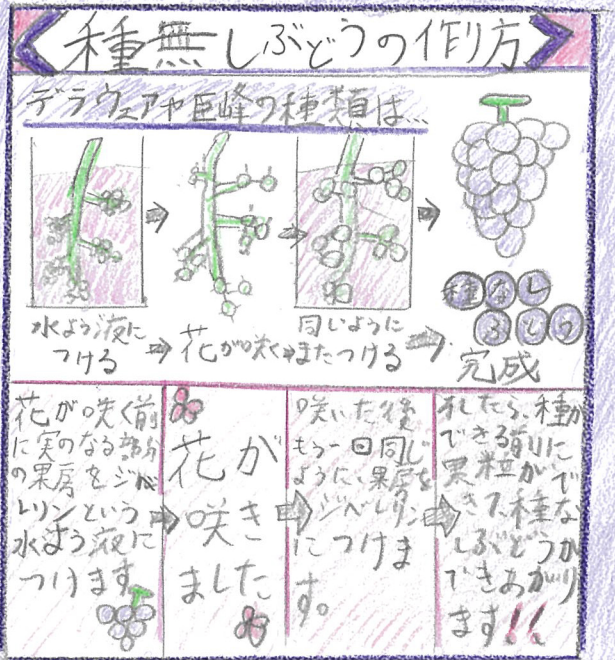 種無しぶどうの作り方
デラウェアや巨峰の種類は…
水よう液に
つける
花が咲く
同じように
またつける
種なし
ぶどう
完成
花が咲く前
に実のなる部分
の果房をジベ
レリンという
水よう液に
つけます
花が
咲き
ました
咲いた後
もう一回同じ
ように、果房を
ジベレリン
につけま
す。
れたら、種が
できる前に
果粒がで
きて、種な
しぶどうが
できあがり
ます!!